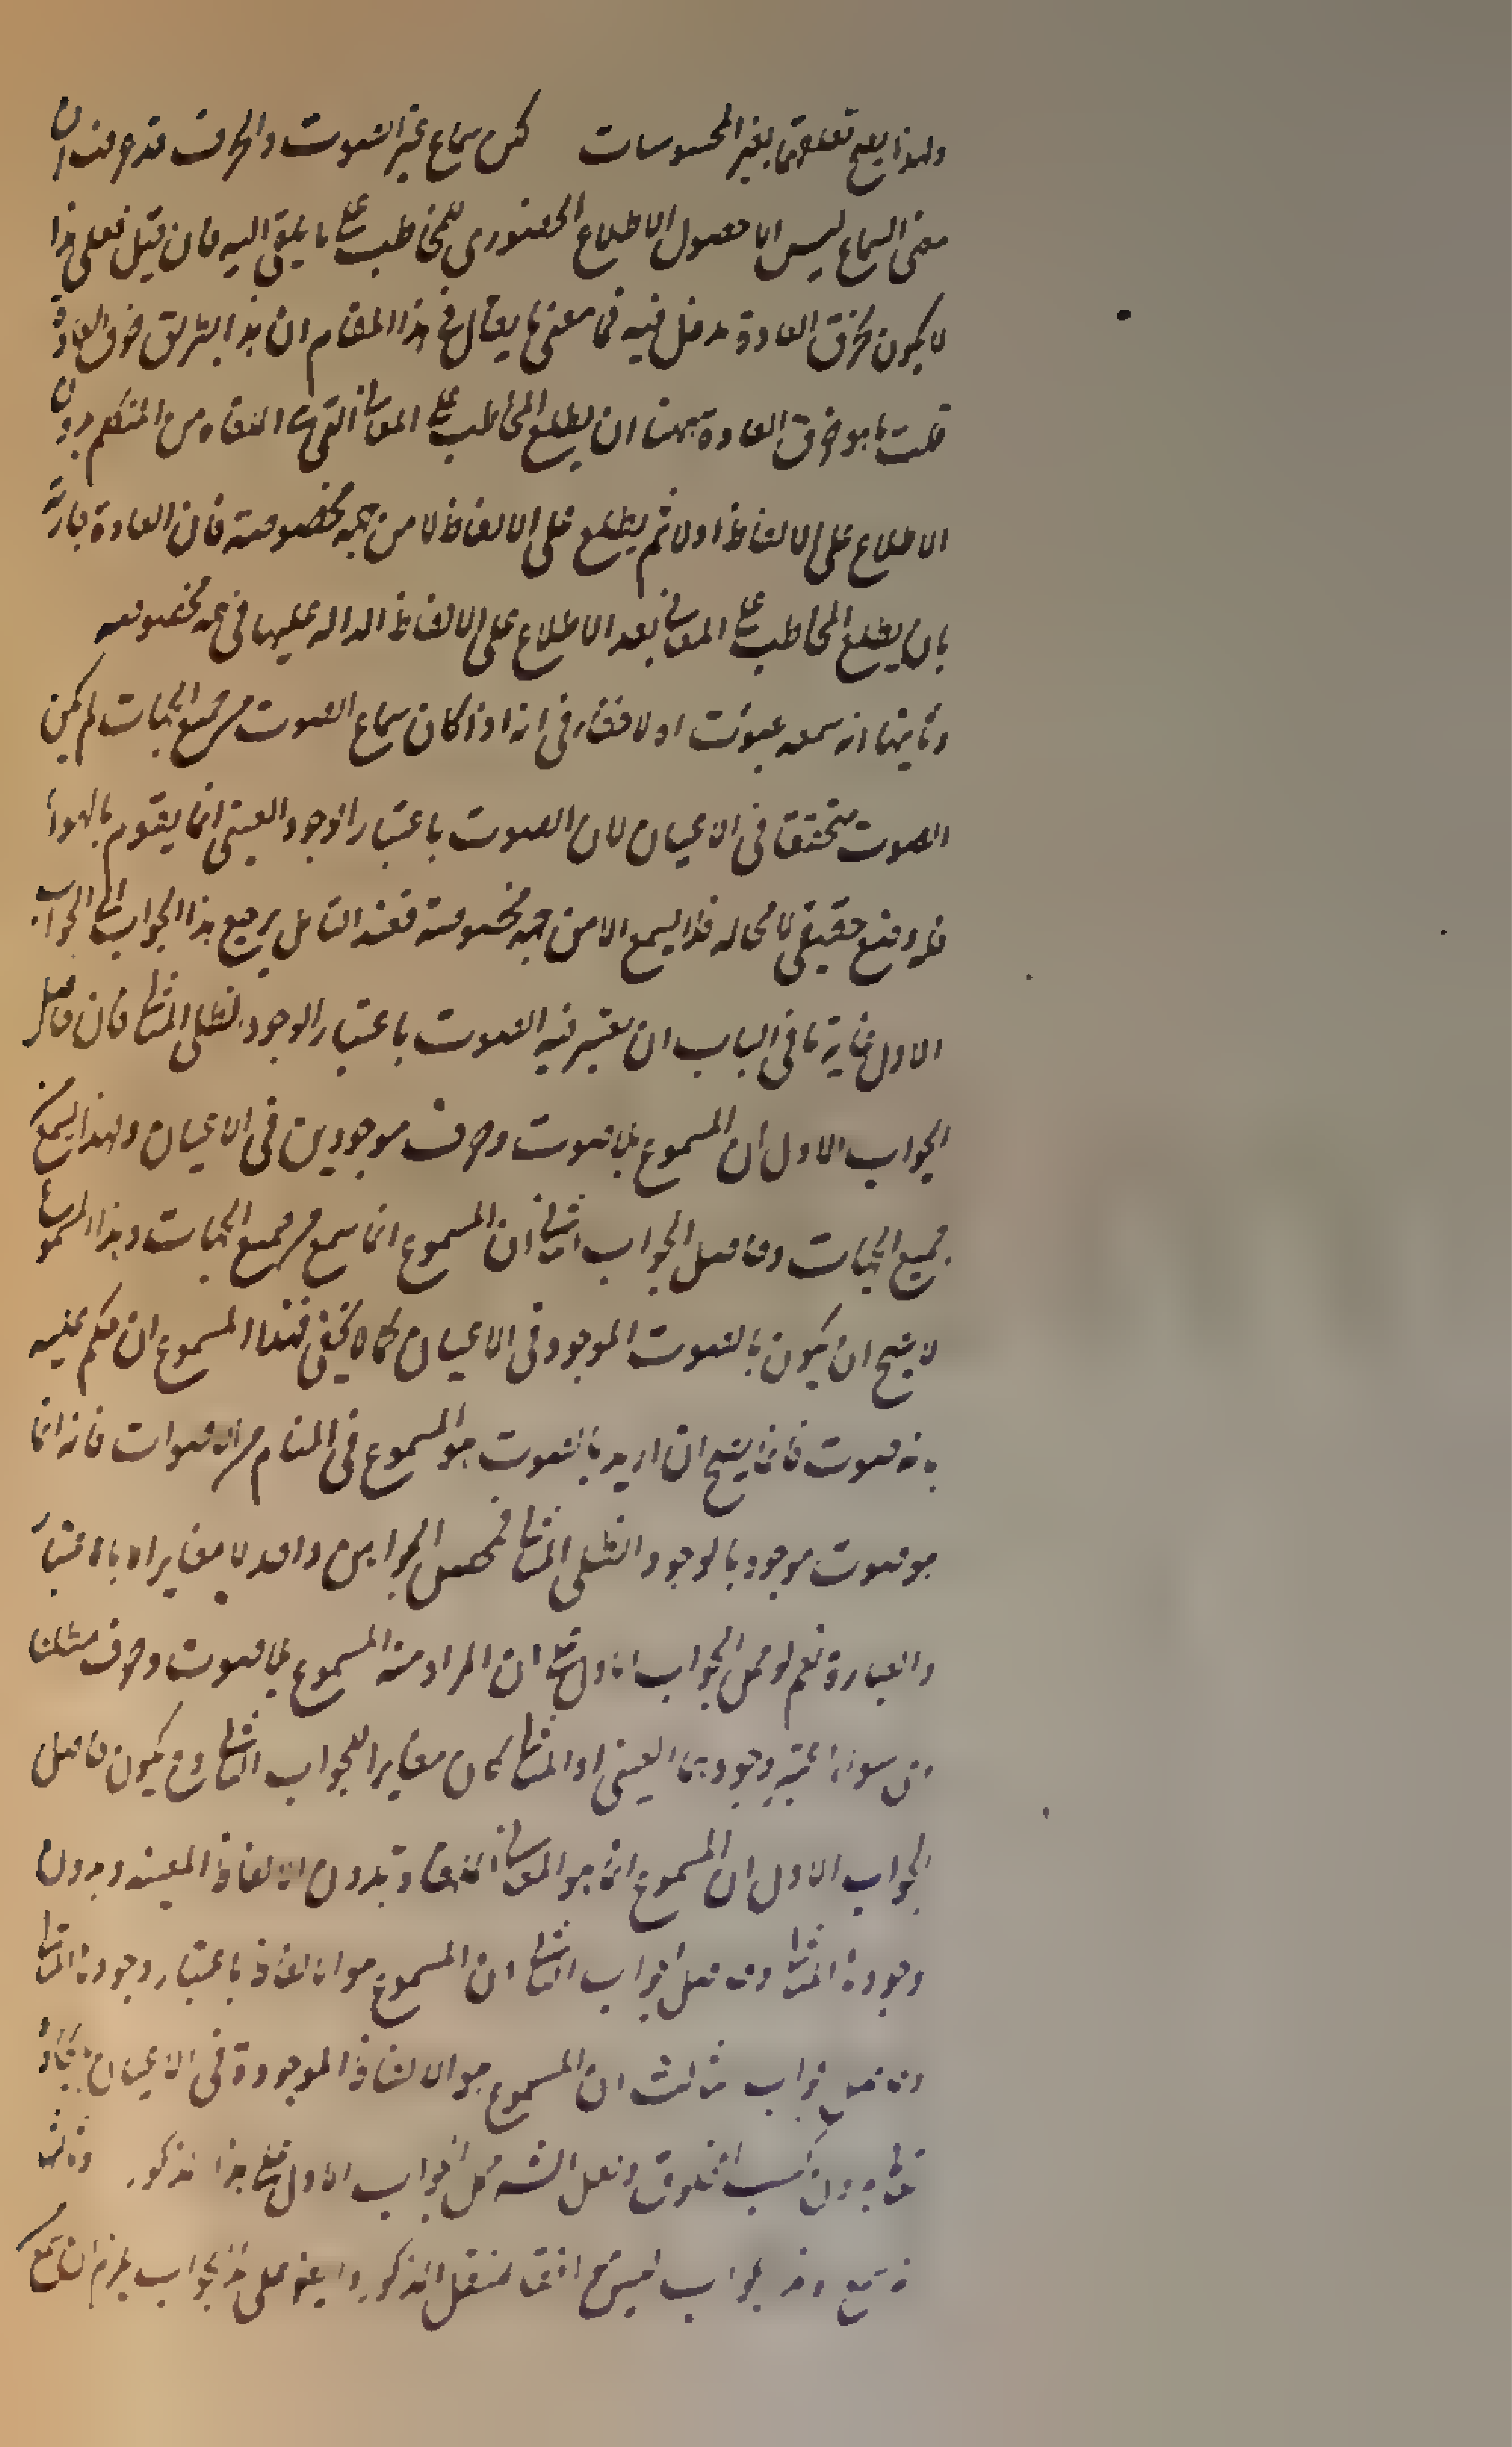 ولهذا يصح تعلقها بغير المحسوسات لكن سماع غير الصوت والحرف قد عرفت ان
معنى السماع ليس الا حصول الاطلاع الحضوري للمخاطب على ما يلقى اليه فان قيل فعلى هذا
لا يكون لخرق العادة مدخل فيه فما معنى ما يقال في هذا المقام ان هذا بطريق خرق العادة
قلت ما هو خرق العادة ههنا ان يطلع المخاطب على المعاني التي القاه من المتكلم بدون
الاطلاع على الالفاظ اولا ثم يطلع على الالفاظ لا من جهة مخصوصة فان العادة جارية
بان يطلع المخاطب على المعاني بعد الاطلاع على الالفاظ الداله عليها في جهة مخصوصه
وثانيها انه سمعه بصوت اه لا خفاء في انه اذا كان سماع الصوت من جميع الجهات لم يكن
الصوت متحققا في الاعيان لان الصوت باعتبار الوجود العيني انما يقوم بالهواء
فله وضع حقيقي لا محاله فلا يسمع الا من جهة مخصوصة فعند التامل يرجع هذا الجواب الى الجواب
الاول غاية ما في الباب ان يعتبر فيه الصوت باعتبار الوجود الظلي المثالي فان حاصل
الجواب الاول ان المسموع بلا صوت وحرف موجودين في الاعيان ولهذا يسمع
جميع الجهات وحاصل الجواب الثاني ان المسموع انما سمع من جميع الجهات وهذا المسموع
لا يصح ان يكون بالصوت الموجود في الاعيان كما لا يخفى فهذا المسموع ان حكم عليه
بانه صوت فانما يصح ان اريد بالصوت هو المسموع في المنام من الاصوات فانه انما
هو صوت موجود بالوجود الظلي المثالي فمحصل الجوابين واحد لا مغايرة الا باعتبار
والعبارة نعم لو حمل الجواب الاول على ان المراد منه المسموع بلا صوت وحرف مطلقا
سواء اعتبر وجودهما العيني او المثالي كان مغايرا للجواب الثاني وح يكون حاصل
الجواب الاول ان المسموع انما هو المعاني الملقاة بدون الالفاظ العينية وبدون
وجوده المثالي وحاصل الجواب الثاني ان المسموع هو الالفاظ باعتبار وجوده المثالي
وحاصل جواب ثالث ان المسموع هو الالفاظ الموجودة في الاعيان بايجاده
تعالى بدون كسب المخلوق ولعل الشه حمل الجواب الاول على هذا المذكور
المذكور على هذا الجواب يلزم ان يسمع